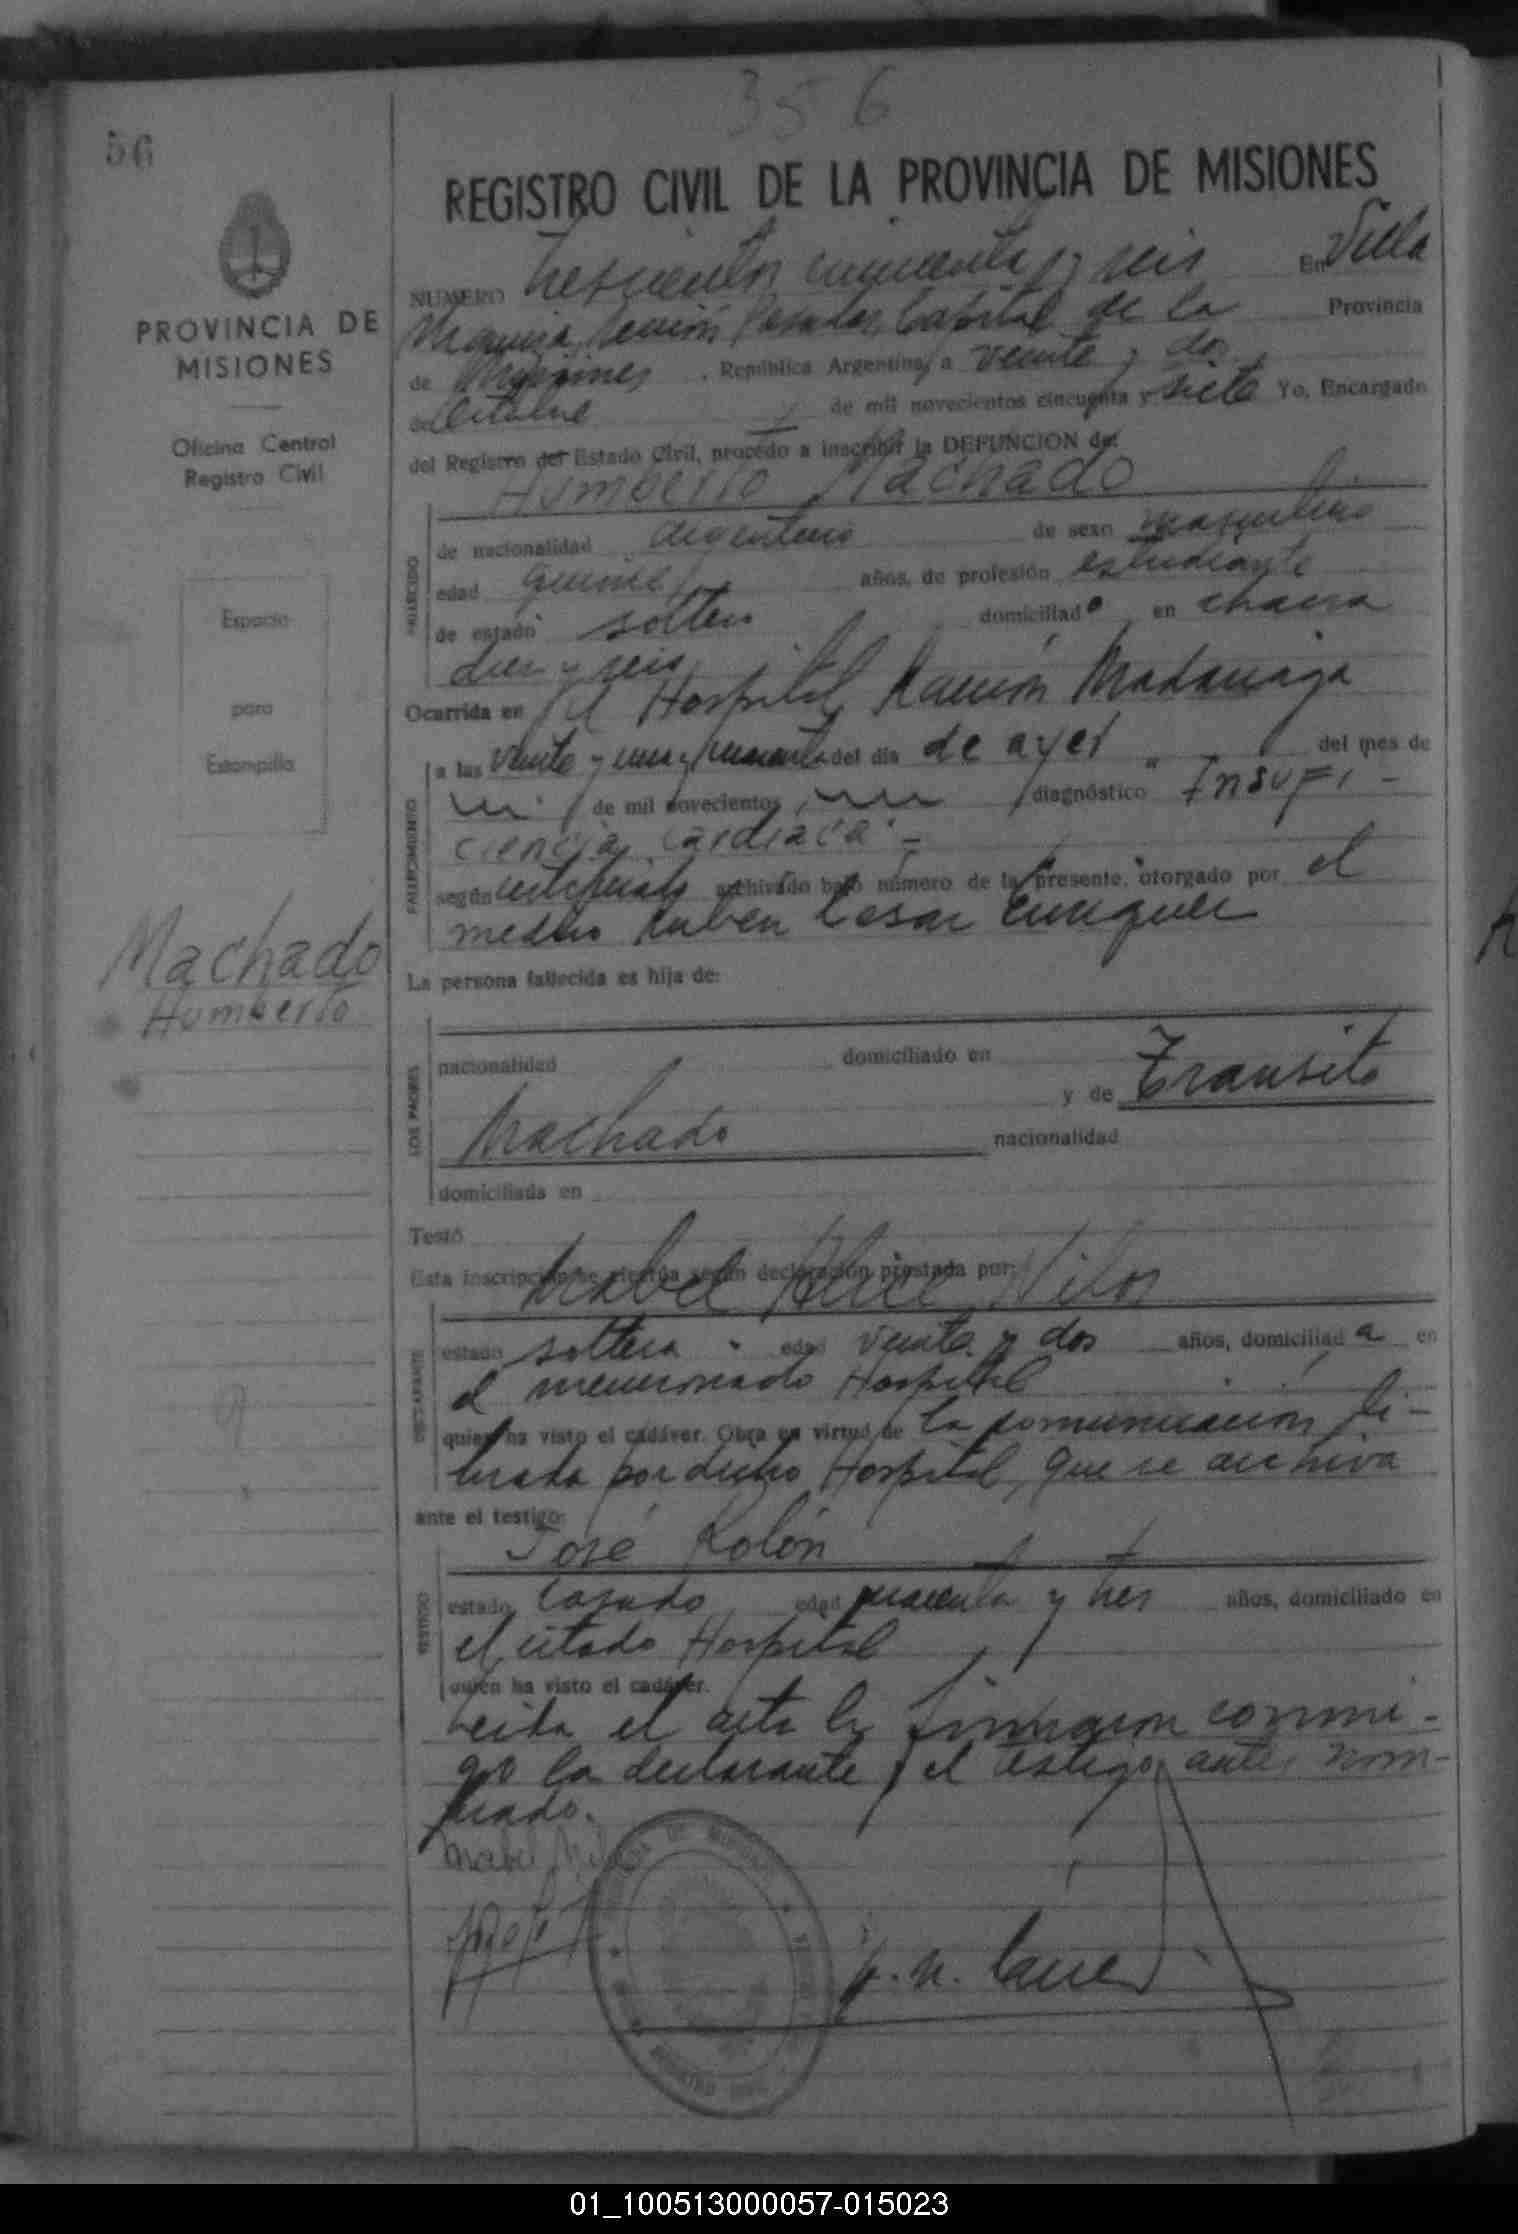 356
56
REGISTRO CIVIL DE LA PROVINCIA DE MISIONES
PROVINCIA DE
MISIONES
Oficina Central
Registro Civil
Espacio
para
Estampilla
Machado
Humberto
NUMERO trescientos cincuenta y seis En Villa
Urquiza, sección Posadas, Capital de la Provincia
de Misiones, República Argentina, a veinte y dos
de Octubre de mil novecientos cincuenta y siete Yo, Encargado
del Registro del Estado Civil, procedo a inscribir la DEFUNCION de:
Humberto Machado
FALLECIDO
de nacionalidad argentino de sexo masculino
edad quince años, de profesión estudiante
de estado soltero domiciliado en chacra
diez y seis
Ocurrida en el Hospital Ramón Madariaga
FALLECIMIENTO
a las veinte y una y cuarenta del día de ayer del mes de
de mil novecientos diagnóstico "Insufi-
ciencia cardiaca"-
según certificado archivado bajo número de la presente, otorgado por el
medico Ruben Cesar
La persona fallecida es hija de:
LOS PADRES
nacionalidad domiciliado en
y de Transito
Machado nacionalidad
domiciliada en
Testó
Esta inscripción se efectúa según declaración prestada por:
Mabel Alice
DECLARANTE
estado soltera edad veinte y dos años, domiciliada en
el mencionado Hospital
quien ha visto el cadáver. Obra en virtud de la comunicación li-
brada por dicho Hospital, que se archiva
ante el testigo:
José Rolón
TESTIGO
estado casado edad cuarenta y tres años, domiciliado en
el citado Hospital
quien ha visto el cadáver.
Leida el acta la firmaron conmi-
go la declarante y el testigo antes nom-
brado.
01_100513000057-015023